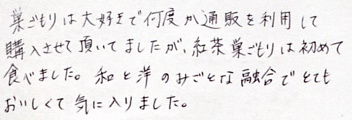 巣ごもりは大好きで何度か通販を利用して
購入させて頂いてましたが、紅茶巣ごもりは初めて
食べました。和と洋のみごとな融合でとても
おいしくて気に入りました。